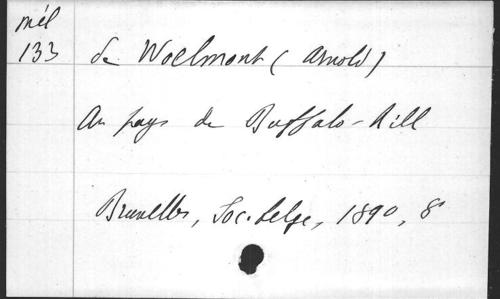 mél
133
de Woelmont (Arnold)
Au pays de Buffalo-Bill
Bruxelles, Soc. belge, 1890, 8°